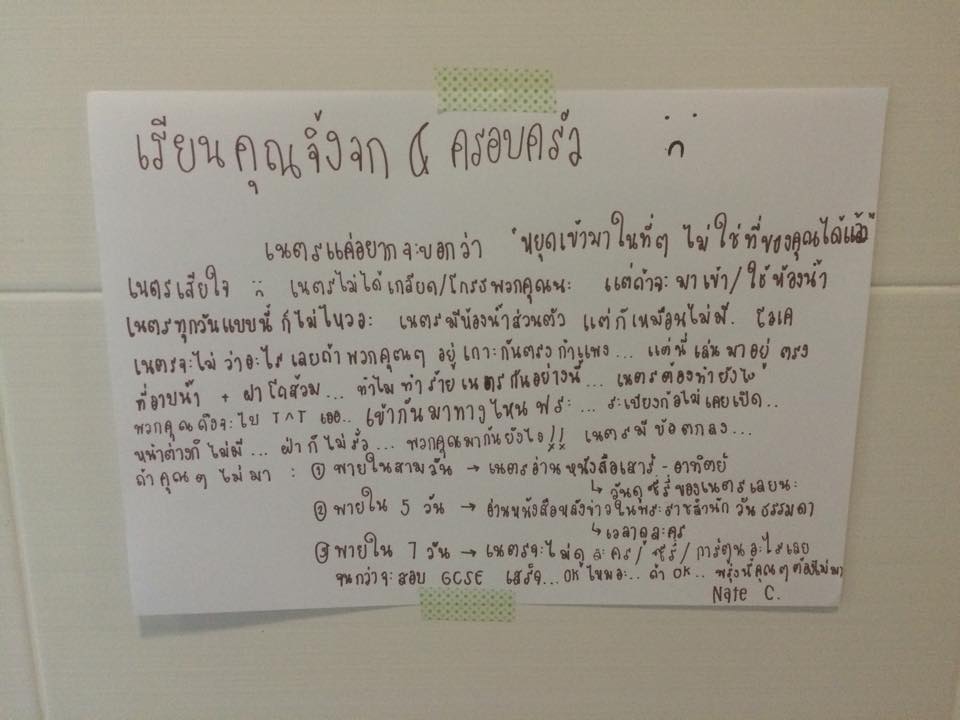 เรียนคุณจิ้งจก & ครอบครัว
เนตรแค่อยากจะบอกว่า "หยุดเข้ามาในที่ๆ ไม่ใช่ที่ของคุณได้แล้ว"
เนตรเสียใจ เนตรไม่ได้เกลียด/โกรธพวกคุณนะ แต่ถ้าจะมาเข้า/ใช้ห้องน้ำ
เนตรทุกวันแบบนี้ ก็ไม่ไหวอะ เนตรมีห้องน้ำส่วนตัว แต่ก็เหมือนไม่มี. โอเค
เนตรจะไม่ว่าอะไรเลยถ้าพวกคุณๆ อยู่เกาะกันตรงกำแพง... แต่นี่เล่นมาอยู่ ตรง
ที่อาบน้ำ + ฝาโถส้วม... ทำไมทำร้ายเนตรกันอย่างนี้... เนตรต้องทำยังไง
พวกคุณถึงจะไป T^T เออ.. เข้ากันมาทางไหนฟระ... ระเบียงก็อไม่เคยเปิด..
หน้าต่างก็ไม่มี... ฝ้าก็ไม่รั่ว... พวกคุณมากันยังไง!! เนตรมีข้อตกลง...
ถ้าคุณๆ ไม่มา : ① ภายในสามวัน → เนตรอ่านหนังสือเสาร์-อาทิตย์
↳ วันดูซีรี่ของเนตรเลยนะ
② ภายใน 5 วัน → อ่านหนังสือหลังข่าวในพระราชสำนัก วันธรรมดา
↳ เวลาดูละคร
③ ภายใน 7 วัน → เนตรจะไม่ดู ละคร/ซีรี่/การ์ตูนอะไรเลย
จนกว่าจะสอบ GCSE เสร็จ... OK ไหมอะ.. ถ้า OK.. พรุ่งนี้คุณๆต้องไม่มา
Nate C.